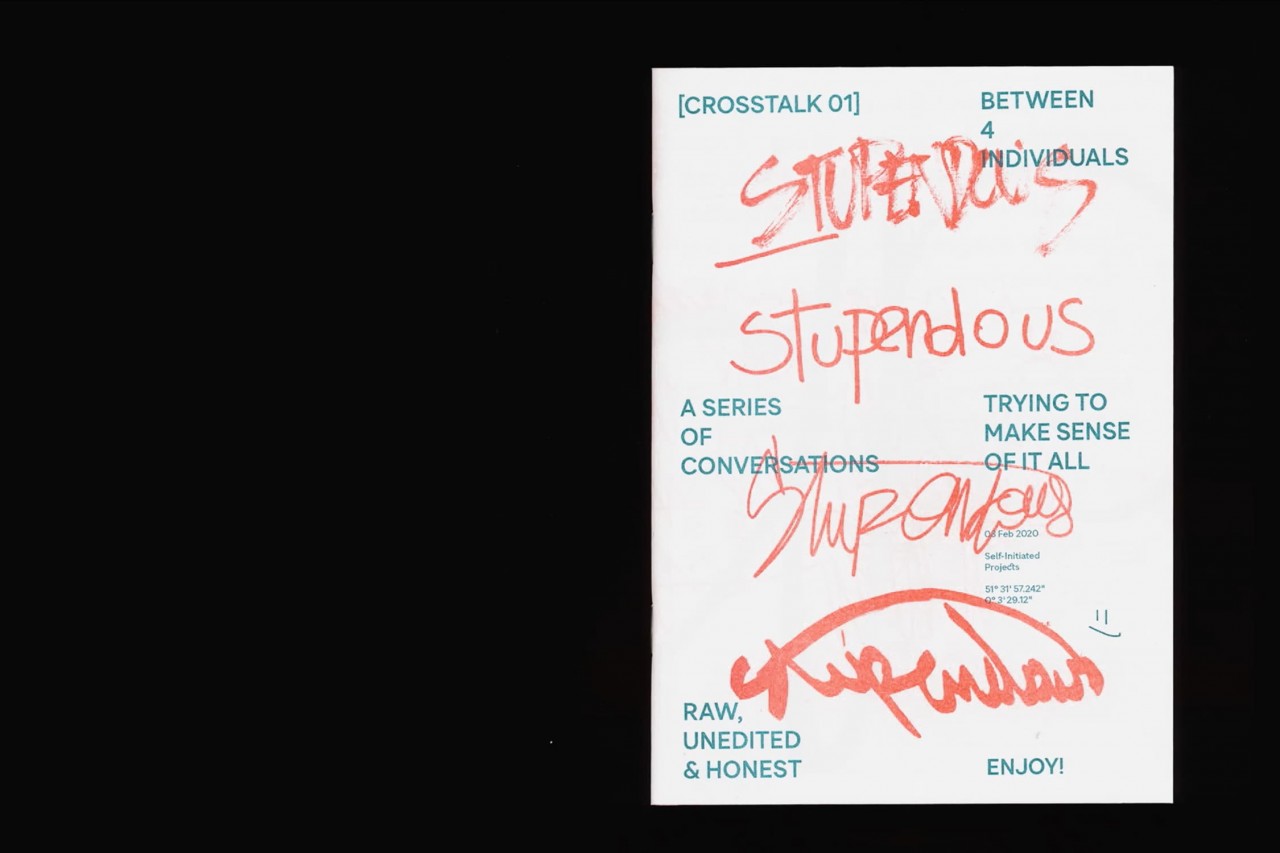 [CROSSTALK 01]
BETWEEN
4
INDIVIDUALS
STUPENDOUS
stupendous
A SERIES
OF
CONVERSATIONS
TRYING TO
MAKE SENSE
OF IT ALL
Stupendous
03 Feb 2020
Self-Initiated
Projects
51° 31' 57.242"
0° 3' 29.12"
stupendous
RAW,
UNEDITED
& HONEST
ENJOY!